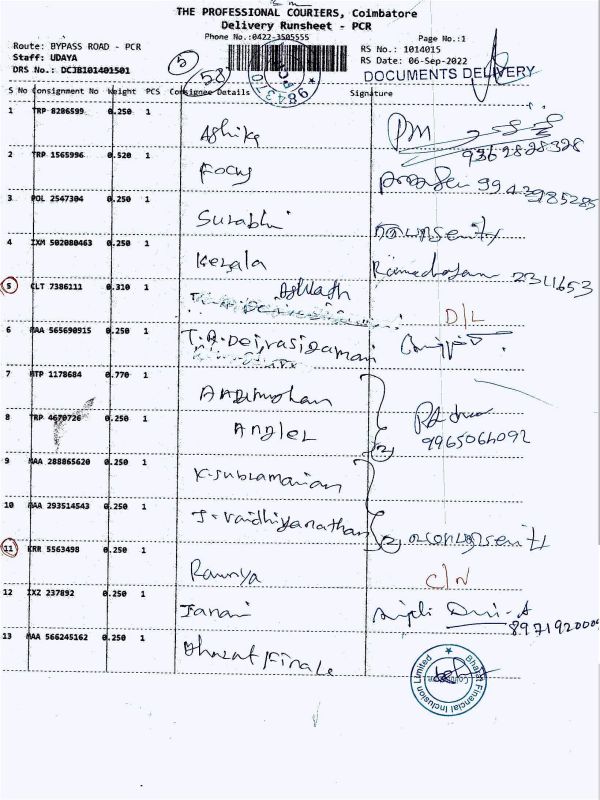 THE PROFESSIONAL COURIERS, Coimbatore
Delivery Runsheet - PCR
Phone No.:0422-3505555
Page No.:1
Route: BYPASS ROAD - PCR
RS No.: 1014015
Staff: UDAYA
RS Date: 06-Sep-2022
DRS No.: DCJB101401501
5
58
DOCUMENTS DELIVERY
S No Consignment No Weight PCS Consignee Details Signature
1 TRP 8286599 0.250 1 Ashika
9362828328
2 TRP 1565996 0.520 1 Focus
3 POL 2547304 0.250 1 Surabhi
4 IXM 502080463 0.250 1 Kerala
2311653
5 CLT 7386111 0.310 1 Ashwath D/L
6 MAA 565690915 0.250 1 T.R. Deivasigamani
7 MTP 1178684 0.770 1 Arulmohan
8 TRP 4670726 1 Angler
9965064092
2
9 MAA 288865620 0.250 1 K. Subramanian
10 MAA 293514543 0.250 1 J. Vaidhiyanathan
2
11 KRR 5563498 0.250 1 Ramya C/N
12 IXZ 237892 0.250 1 Janani
8971920009
13 MAA 566245162 0.250 1 Bharat Finance
Bharat Financial Inclusion Limited